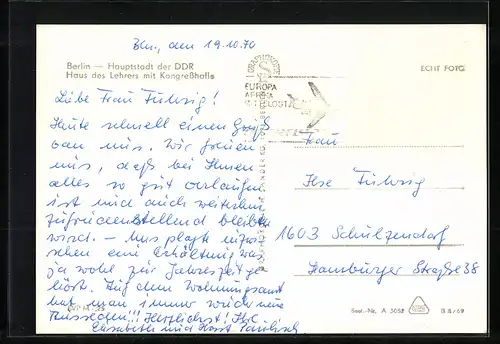 Bln., den 19.10.70
Berlin — Hauptstadt der DDR
Haus des Lehrers mit Kongreßhalle
ECHT FOTO
EUROPA
Liebe Frau Fulwig!
Heute schnell einen Gruß
von uns. Wir freuen
uns, daß bei Ihnen
alles so gut verlaufen
ist und auch weiterhin
zufriedenstellend bleiben
wird. — Uns plagte inzwi-
schen eine Erkältung wie
ja wohl zur Jahreszeit ge-
hört. Auf dem Wohnungsamt
hat man immer wieder neue
Ausreden!!! Herzlichst! Ihre
Elisabeth und Horst
Frau
Ilse Fulwig
1603 Schulzendorf
Hamburger Straße 38
Best.-Nr. A 3052
B 8/69